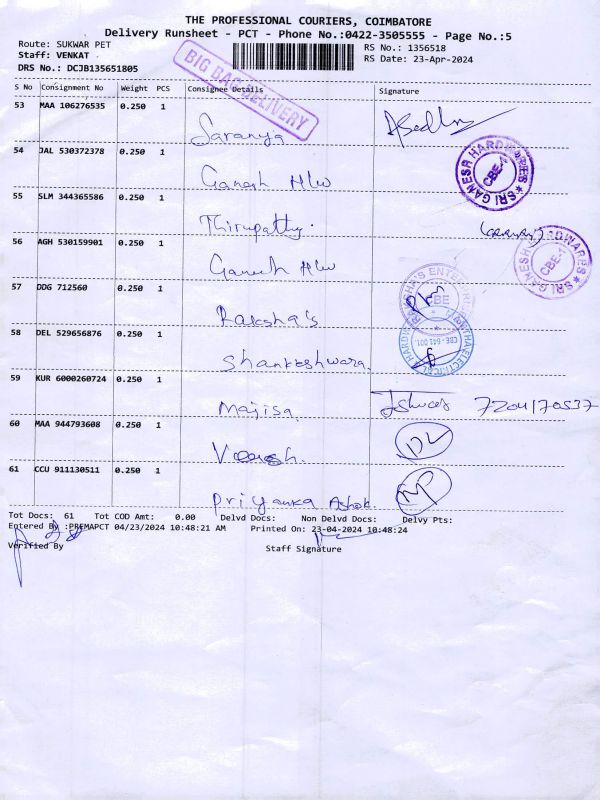 THE PROFESSIONAL COURIERS, COIMBATORE
Delivery Runsheet - PCT - Phone No.:0422-3505555 - Page No.:5
Route: SUKWAR PET
Staff: VENKAT
DRS No.: DCJB135651805
RS No.: 1356518
RS Date: 23-Apr-2024
BIG BAG DELIVERY
S No Consignment No Weight PCS Consignee Details Signature
53 MAA 106276535 0.250 1
Saranya
54 JAL 530372378 0.250 1
Ganesh H/w
SRI GANESH HARDWARES CBE-1
55 SLM 344365586 0.250 1
Thirupathy.
56 AGH 530159901 0.250 1
Ganesh H/w
SRI GANESH HARDWARES CBE-1
57 DDG 712560 0.250 1
Raksha's
58 DEL 529656876 0.250 1
Shankeshwara
CBE - 641 001.
59 KUR 6000260724 0.250 1
Majisa
7204170537
60 MAA 944793608 0.250 1
61 CCU 911130511 0.250 1
Priyanka Ashok
Tot Docs: 61 Tot COD Amt: 0.00 Delvd Docs: Non Delvd Docs: Delvy Pts:
Entered By :PREMAPCT 04/23/2024 10:48:21 AM Printed On: 23-04-2024 10:48:24
Verified By Staff Signature